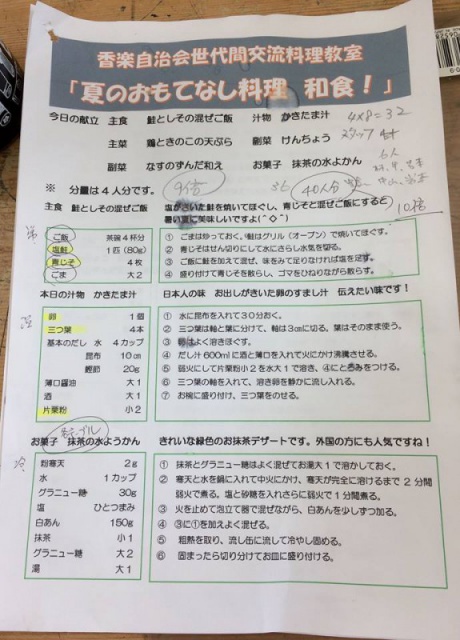 香楽自治会世代間交流料理教室
「夏のおもてなし料理 和食！」
今日の献立 主食 鮭としその混ぜご飯 汁物 かきたま汁
4×8=32
主菜 鶏ときのこの天ぷら 副菜 けんちょう
スタッフ
副菜 なすのずんだ和え お菓子 抹茶の水ようかん
6人
※ 分量は４人分です。
9倍
36
40人分
10倍
主食 鮭としその混ぜご飯 塩がきいた鮭を焼いてほぐし、青じそと混ぜご飯にすると
暑い夏に美味しいですよ(^◇^)
ご飯 茶碗４杯分
塩鮭 １匹（80g）
青じそ ４枚
ごま 大２
① ごはんは炊いておく。鮭はグリル（オーブン）で焼いてほぐす。
② 青じそはせん切りにして水にさらし水気を切る。
③ ご飯に鮭を加えて混ぜ、味をみて足りなければ塩を足す。
④ 盛り付けて青じそを散らし、ゴマをひねりながら散らす。
本日の汁物 かきたま汁 日本人の味 お出しがきいた卵のすまし汁 伝えたい味です！
卵 １個
三つ葉 ４本
基本のだし 水 ４カップ
昆布 10㎝
鰹節 20g
薄口醤油 大１
酒 大１
片栗粉 小２
① 水に昆布を入れて３０分おく。
② 三つ葉は軸と葉に分けて、軸は３㎝に切る。葉はそのまま使う。
③ 卵はよく溶きほぐす。
④ だし汁 600ml に酒と薄口を入れて火にかけ沸騰させる。
⑤ 弱火にして片栗粉小２を水大１で溶き、④にとろみをつける。
⑥ 三つ葉の軸を入れて、溶き卵を静かに流し入れる。
⑦ お椀に盛り付け、三つ葉をのせる。
お菓子 抹茶の水ようかん きれいな緑色のお抹茶デザートです。外国の方にも人気ですね！
粉寒天 ２g
水 １カップ
グラニュー糖 30g
塩 ひとつまみ
白あん 150g
抹茶 小１
グラニュー糖 大２
湯 大１
① 抹茶とグラニュー糖はよく混ぜてお湯大１で溶かしておく。
② 寒天と水を鍋に入れて中火にかけ、寒天が完全に溶けるまで２分間
弱火で煮る。塩と砂糖を入れさらに弱火で１分間煮る。
③ 火を止めて泡立て器で混ぜながら、白あんを少しずつ加る。
④ ③に①を加えよく混ぜる。
⑤ 粗熱を取り、流し缶に流して冷やし固める。
⑥ 固まったら切り分けてお皿に盛り付ける。